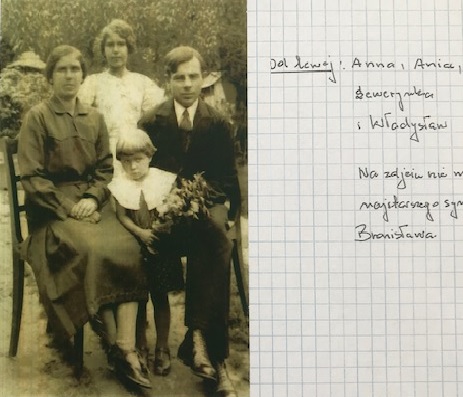 Od lewej: Anna, Ania,
Sewerynka
i Władysław
Na zdjęciu nie m
najstarszego syn
Bronisława